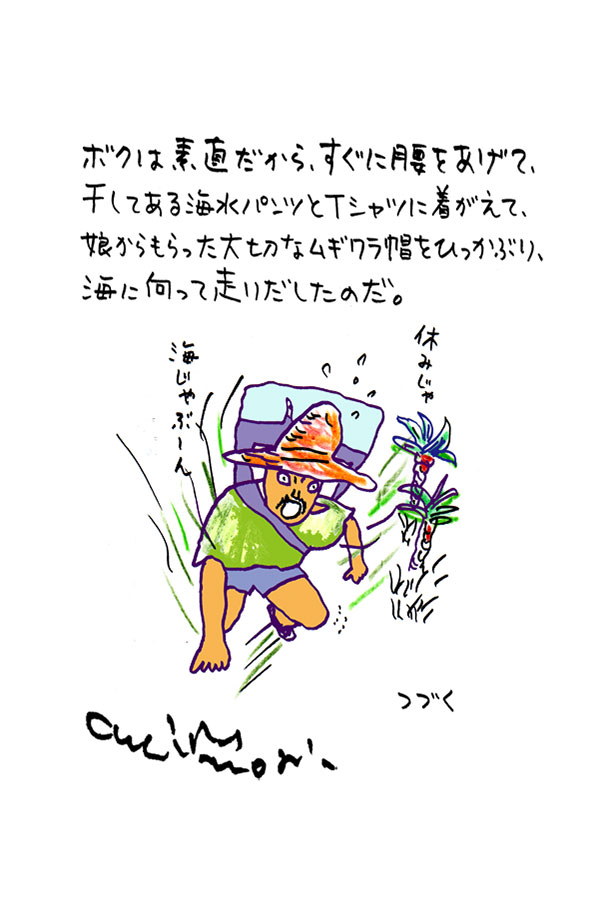 ボクは素直だから、すぐに腰をあげて、
干してある海水パンツとTシャツに着がえて、
娘からもらった大切なムギワラ帽をひっかぶり、
海に向って走りだしたのだ。
休みじゃ
海じゃぶーん
つづく